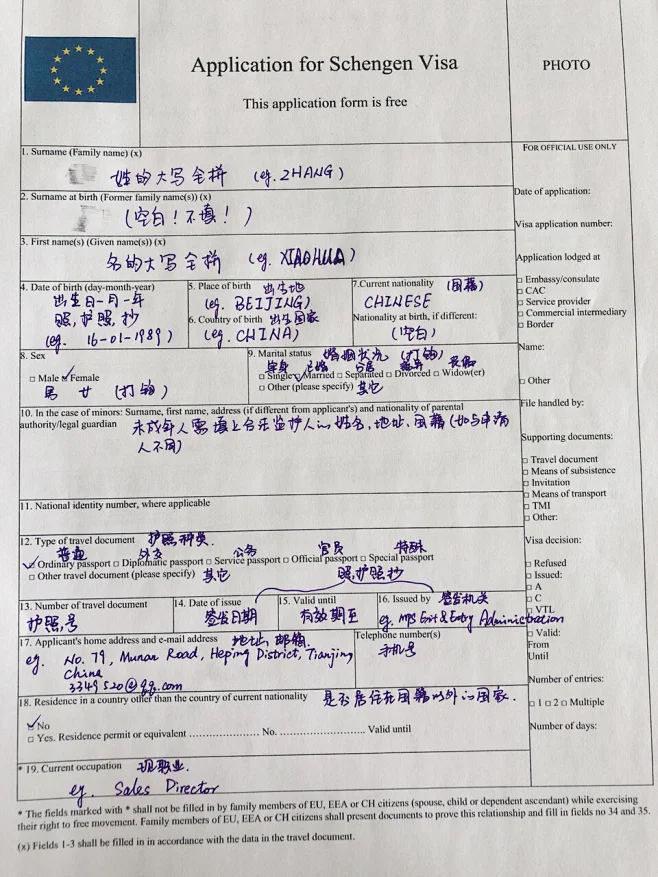 Application for Schengen Visa
This application form is free
PHOTO
1. Surname (Family name) (x)
姓的大写全拼 (eg. ZHANG)
2. Surname at birth (Former family name(s)) (x)
(空白！不填！)
3. First name(s) (Given name(s)) (x)
名的大写全拼 (eg. XIAOHUA)
4. Date of birth (day-month-year)
出生日-月-年
照护照抄
(eg. 16-01-1989)
5. Place of birth 出生地
(eg. BEIJING)
6. Country of birth 出生国家
(eg. CHINA)
7.Current nationality (国籍)
CHINESE
Nationality at birth, if different:
(空白)
8. Sex
□ Male ✓ Female
男 女 (打钩)
9. Marital status 婚姻状况 (打钩)
单身 已婚 分居 离异 丧偶
□ Single ✓ Married □ Separated □ Divorced □ Widow(er)
□ Other (please specify) 其它
10. In the case of minors: Surname, first name, address (if different from applicant's) and nationality of parental
authority/legal guardian 未成年人需填上合法监护人的姓名,地址,国籍(如与申请
人不同)
11. National identity number, where applicable
12. Type of travel document 护照种类.
普通 外交 公务 官员 特殊
✓ Ordinary passport □ Diplomatic passport □ Service passport □ Official passport □ Special passport
□ Other travel document (please specify) 其它 照护照抄
13. Number of travel document
护照号
14. Date of issue
签发日期
15. Valid until
有效期至
16. Issued by 签发机关
eg. MPS Exit & Entry Administration
17. Applicant's home address and e-mail address 地址, 邮箱.
eg. No. 79, Munan Road, Heping District, Tianjing
China
3349520@qq.com
Telephone number(s)
手机号
18. Residence in a country other than the country of current nationality 是否居住在国籍以外的国家.
✓ No
□ Yes. Residence permit or equivalent ........................ No. .............................. Valid until
* 19. Current occupation 现职业.
eg. Sales Director
FOR OFFICIAL USE ONLY
Date of application:
Visa application number:
Application lodged at
□ Embassy/consulate
□ CAC
□ Service provider
□ Commercial intermediary
□ Border
Name:
□ Other
File handled by:
Supporting documents:
□ Travel document
□ Means of subsistence
□ Invitation
□ Means of transport
□ TMI
□ Other:
Visa decision:
□ Refused
□ Issued:
□ A
□ C
□ VTL
□ Valid:
From
Until
Number of entries:
□ 1 □ 2 □ Multiple
Number of days:
* The fields marked with * shall not be filled in by family members of EU, EEA or CH citizens (spouse, child or dependent ascendant) while exercising
their right to free movement. Family members of EU, EEA or CH citizens shall present documents to prove this relationship and fill in fields no 34 and 35.
(x) Fields 1-3 shall be filled in in accordance with the data in the travel document.